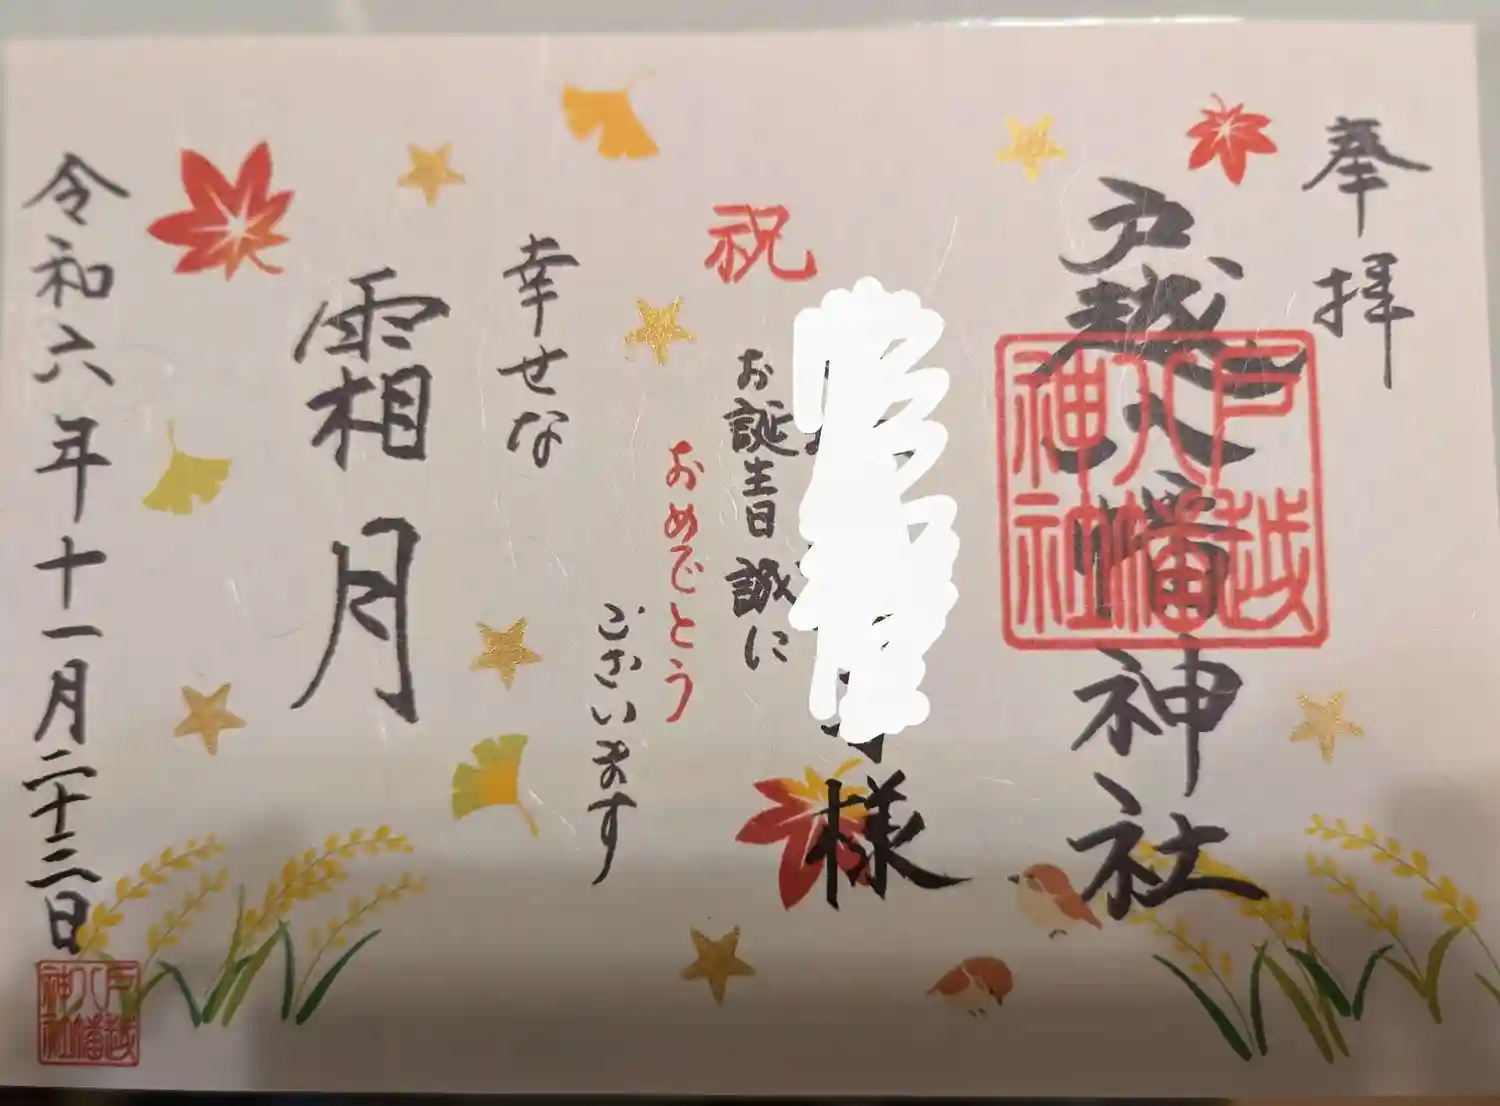 奉拝
戸越八幡神社
戸越
八幡
神社
様
お誕生日誠に
祝
おめでとう
ございます
幸せな
霜月
令和六年十一月二十三日
戸越
八幡
神社